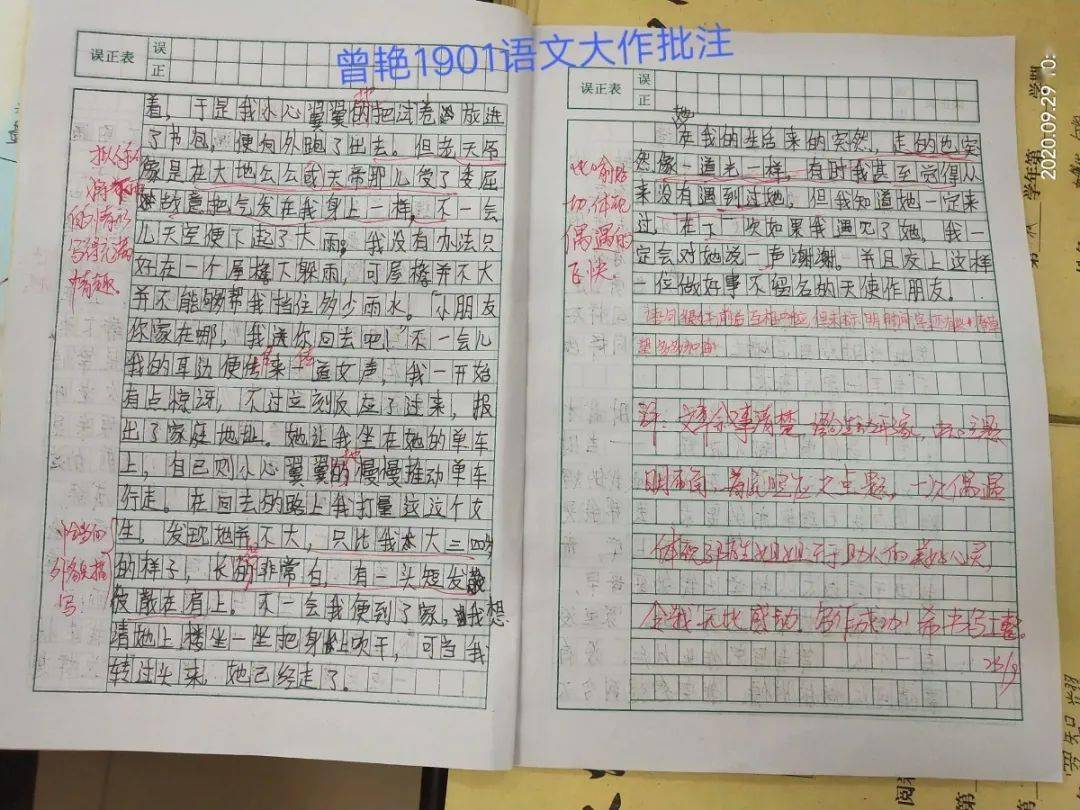 曾艳1901语文大作批注
2020.09.29
误正表
误
正
着，于是我小心翼翼的把试卷放进
了书包，便向外跑了出去。但故天原
像是在大地公公或天帝那儿受了委屈
故意把气发在我身上一样，不一会
儿天空便下起了大雨，我没有办法只
好在一个屋檐下躲雨，可屋檐并不大
并不能够帮我挡住多少雨水。「小朋友
你家在哪，我送你回去吧！」不一会儿
我的耳边便传来一道女声，我一开始
有点惊讶，不过立刻反应了过来，报
出了家庭地址。她让我坐在她的单车
上，自己则小心翼翼的慢慢推动单车
行走。在回去的路上我打量这这个女
生，发现她并不大，只比我大三四岁
的样子，长的非常白，有一头短发
披散在肩上。不一会我便到了家，我想
请她上楼坐一坐把身上吹干，可当我
转过头来，她已经走了。
情趣。
恰当的
外貌描
写
误正表
误
正
她在我的生活来的突然，走的也突
然像一道光一样，有时我甚至觉得从
来没有遇到过她，但我知道她一定来
过，在下一次如果我遇见了她，我一
定会对她说一声谢谢。并且交上这样
一位做好事不留名的天使作朋友。
比喻贴
切，体现
偶遇的
飞快
评：文章叙事清楚，语言生动形象，中心主题
明确，首尾照应点主题，一次偶遇
体现了那女生姐姐乐于助人的美好心灵，
令我无比感动，写作成功！希书写工整。
28/9
学年第
学期